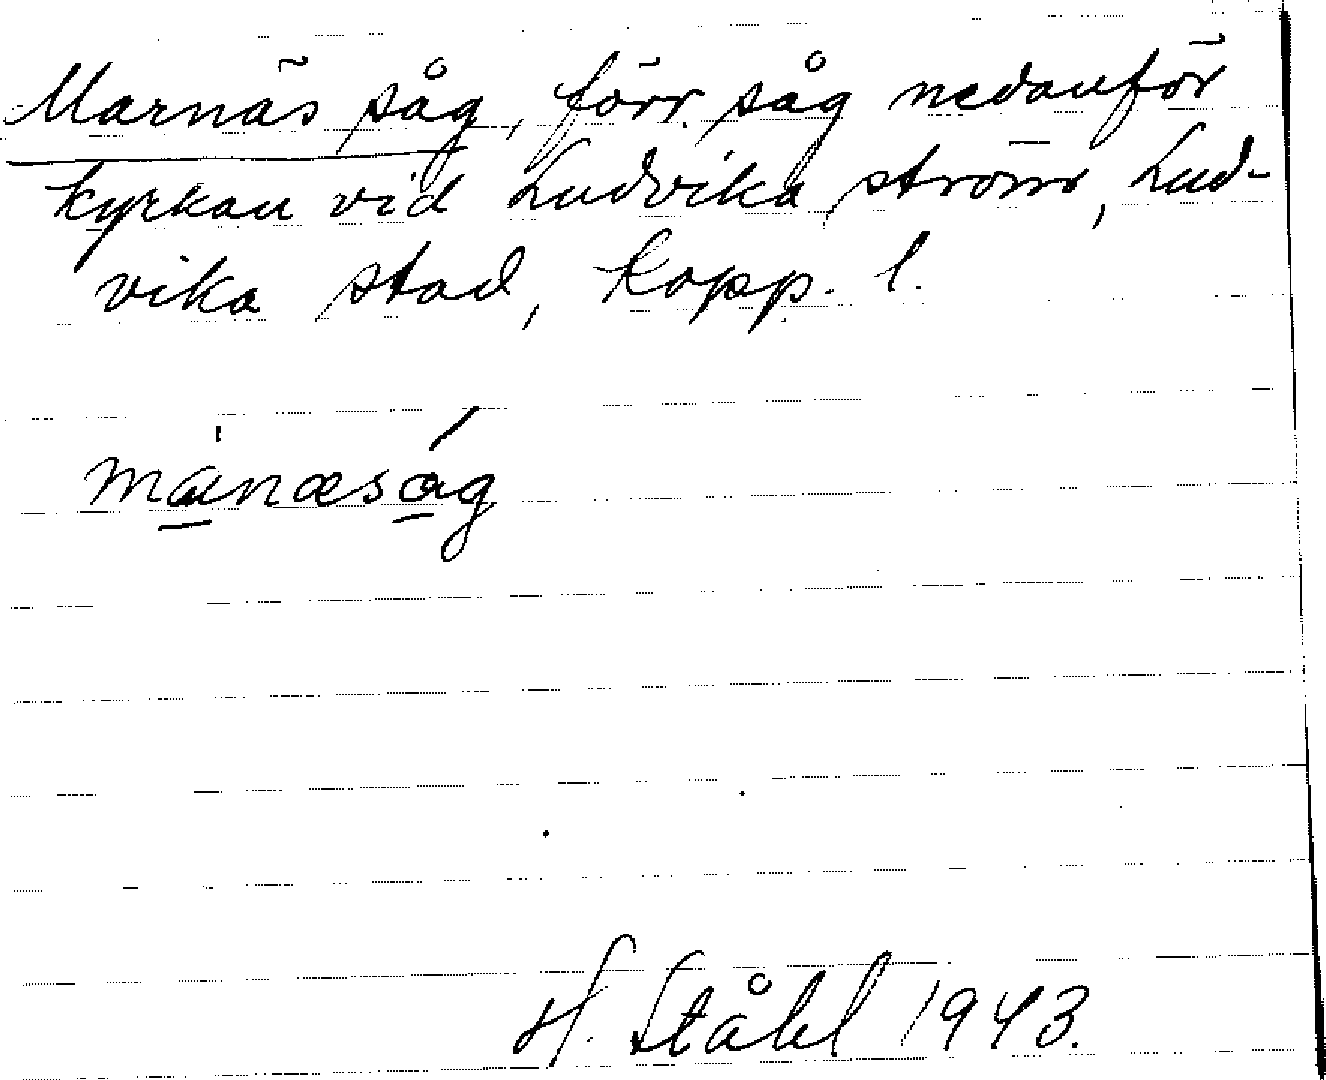 Marnäs såg, förr såg nedanför
kyrkan vid Ludvika ström, Lud-
vika stad, Kopp. l.
mánæság
H. Ståhl 1943.